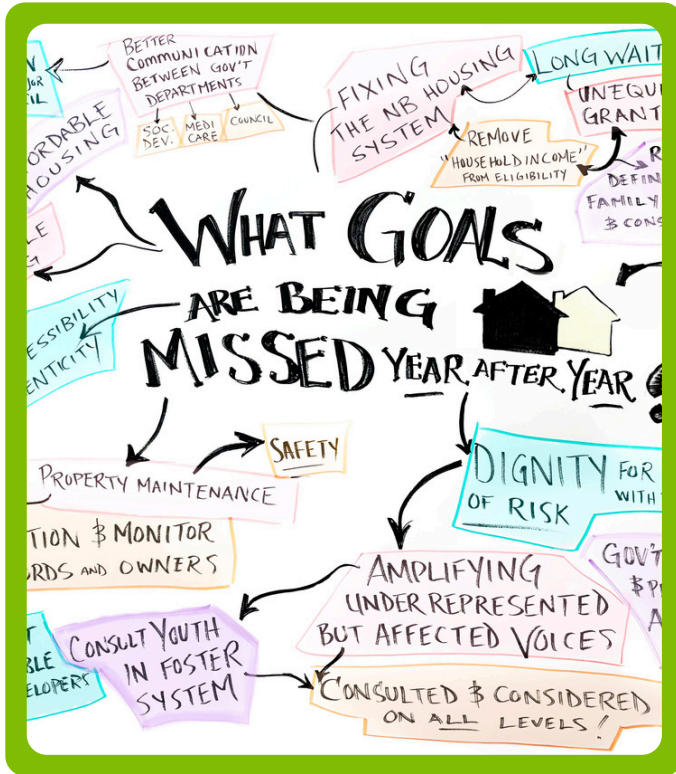 BETTER
COMMUNICATION
BETWEEN GOV'T
DEPARTMENTS
SOC.
DEV.
MEDI
CARE
COUNCIL
FIXING
THE NB HOUSING
SYSTEM
LONG WAIT
UNEQU
GRANT
REMOVE
"HOUSEHOLD INCOME"
FROM ELIGIBILITY
R
DEFIN
FAMILY
& CONS
ORDABLE
HOUSING
LE
G
WHAT GOALS
ARE BEING
MISSED YEAR AFTER YEAR
ESSIBILITY
ENTICITY
SAFETY
PROPERTY MAINTENANCE
TION & MONITOR
RDS AND OWNERS
DIGNITY FOR
OF RISK WITH
AMPLIFYING
UNDERREPRESENTED
BUT AFFECTED VOICES
GOV'T
& P
A
CONSULT YOUTH
IN FOSTER
SYSTEM
BLE
ELOPERS
CONSULTED & CONSIDERED
ON ALL LEVELS!